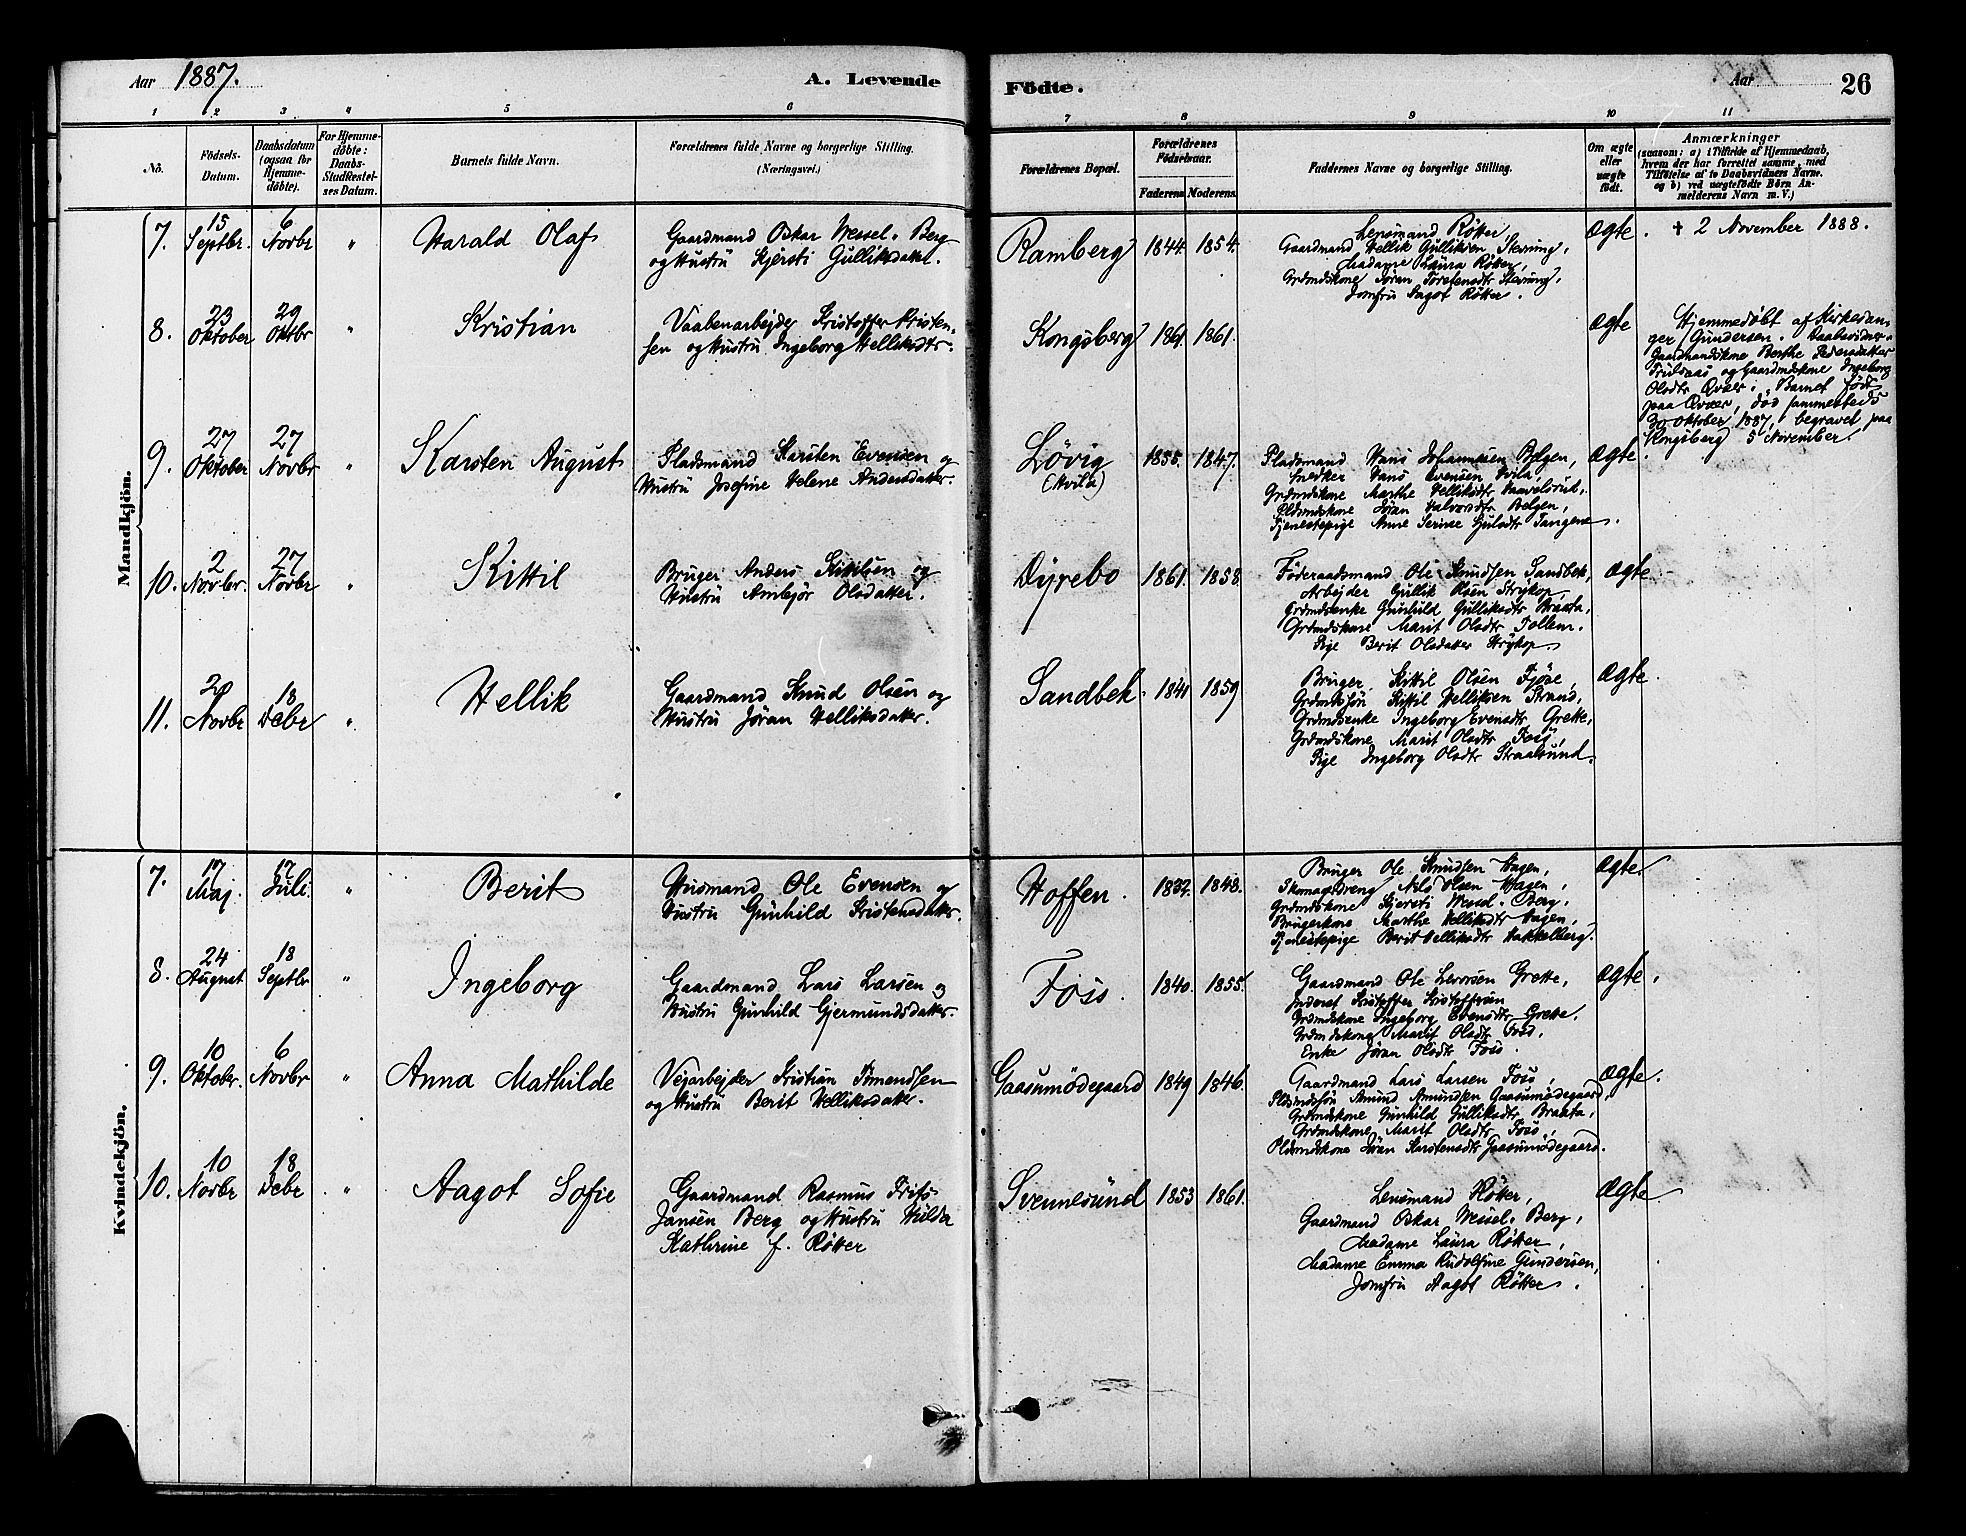 Aar 1887. A. Levende Födte. Aar 26
1 2 3 4 5 6 7 8 9 10 11
No. Födsels-Datum. Daabsdatum (ogsaa for Hjemme-døbte). For Hjemme-døbte: Daabs-Stadfæstel-ses Datum. Barnets fulde Navn. Forældrenes fulde Navne og borgerlige Stilling. (Næringsvei.) Forældrenes Bopæl. Forældrenes Födselsaar. Faderens Moderens. Faddernes Navne og borgerlige Stilling. Om ægte eller uægte födt. Anmærkninger
(saasom: a) i Tilfælde af Hjemmedaab,
hvem der har forrettet samme, med
Tilföielse af to Daabsvidners Navne.
og b) ved uægtefödte Börn An-
melderens Navn m. V.)
Mandkjön.
7. 15 Septbr. 6 Novbr " Harald Olaf
Gaardmand Oskar Wessel-Berg
og Hustru Kjersti Gulliksdatter.
Ramberg 1844. 1854.
Lensmand Røtter
Gaardmand Hellik Gulliksen
Madame Laura Røtter,
Grdmdskone Jøran Torstensdtr
Jomfru Aagot Røtter.
Ægte. † 2 November 1888.
8. 23 Oktober 29 Oktbr " Kristian
Vaabenarbejder Kristoffer Kristen-
sen og Hustru Ingeborg Helliksdtr.
Kongsberg 1861. 1861.
Ægte
Hjemmedøbt af Kirkesan-
ger Gundersen. Daabsvidner:
Gaardmandskone Berthe Pedersdatter
Trulsaas og Gaardmdskone Ingeborg
Olsdtr Qvær. Barnet født
paa Qvær, død sammesteds
30 Oktober 1887, begravet paa
Kongsberg 5 November.
9. 27 Oktober 27 Novbr " Karsten August
Pladsmand Karsten Evensen og
Hustru Josefine Helene Andersdatter.
Løvig (Hvila) 1855. 1847.
Pladsmand Hans Johannesen Belgen,
Snedker Hans Evensen Hvila,
Grdmdskone Marthe Helliksdtr
Pldsmdskone Jøran Halvorsdtr Belgen,
Tjenestepige Anne Serine Tangene.
Ægte.
10. 2 Novbr. 27 Novbr " Kittil
Bruger Anders Kittilsen og
Hustru Ambjør Olsdatter.
Dyrebo 1861. 1858.
Føderaadsmand Ole Knudsen Sandbek,
Arbejder Gullik Olsen Strykop,
Grdmdsenke Gunhild Gulliksdtr Braata,
Grdmdskone Marit Olsdtr
Pige Berit Olsdatter Strykop.
Ægte.
11. 20 Novbr 18 Debr " Hellik
Gaardmand Knud Olsen og
Hustru Jøran Helliksdatter.
Sandbek. 1841 1859
Bruger Kittil Olsen Fjøse,
Grdmdssøn Kittil Helliksen Strand,
Grdmdsenke Ingeborg Evensdtr Grette,
Grdmdskone Marit Olsdtr Foss,
Pige Ingeborg Olsdtr Straalsund.
Ægte.
Kvindekjön.
7. 17 Maj. 17 Juli. " Berit
Husmand Ole Evensen og
Hustru Gunhild Kristensdatter.
Hoffen. 1832. 1848.
Bruger Ole Knudsen Hagen,
Skomagerdreng Nils Olsen Hagen,
Grdmdskone Kjersti Wessel-Berg,
Brugerkone Marthe Helliksdtr Hagen,
Tjenestepige Berit Helliksdtr Hakkelberg.
Ægte.
8. 24 August 18 Septbr " Ingeborg
Gaardmand Lars Larsen og
Hustru Gunhild Gjermundsdatter.
Foss. 1840. 1855.
Gaardmand Ole Grette,
Inderst Kristoffer Kristoffersen
Grdmdskone Ingeborg Evensdtr Grette.
Grdmdskone Marit Olsdtr Foss,
Enke Jøran Olsdtr Foss.
Ægte.
9. 10 Oktober. 6 Novbr " Anna Mathilde
Vejarbejder Kristian Simensen
og Hustru Berit Helliksdatter.
Gaasumødegaard 1849 1846.
Gaardmand Lars Larsen Foss,
Pldsmdssøn Amund Amundsen Gaasumødegaard,
Grdmdskone Gunhild Gulliksdtr Braata,
Grdmdskone Marit Olsdtr Foss,
Pldsmdskone Jøran Karstensdtr Gaasumødegaard.
Ægte.
10. 10 Novbr 18 Debr " Aagot Sofie
Gaardmand Rasmus Friis-
Jansen Berg og Hustru Hilda
Kathrine f. Røtter
Svennesund 1853 1861.
Lensmand Røtter,
Gaardmand Oskar Wessel-Berg,
Madame Laura Røtter,
Madame Emma Rudolfine Gundersen,
Jomfru Aagot Røtter.
Ægte.